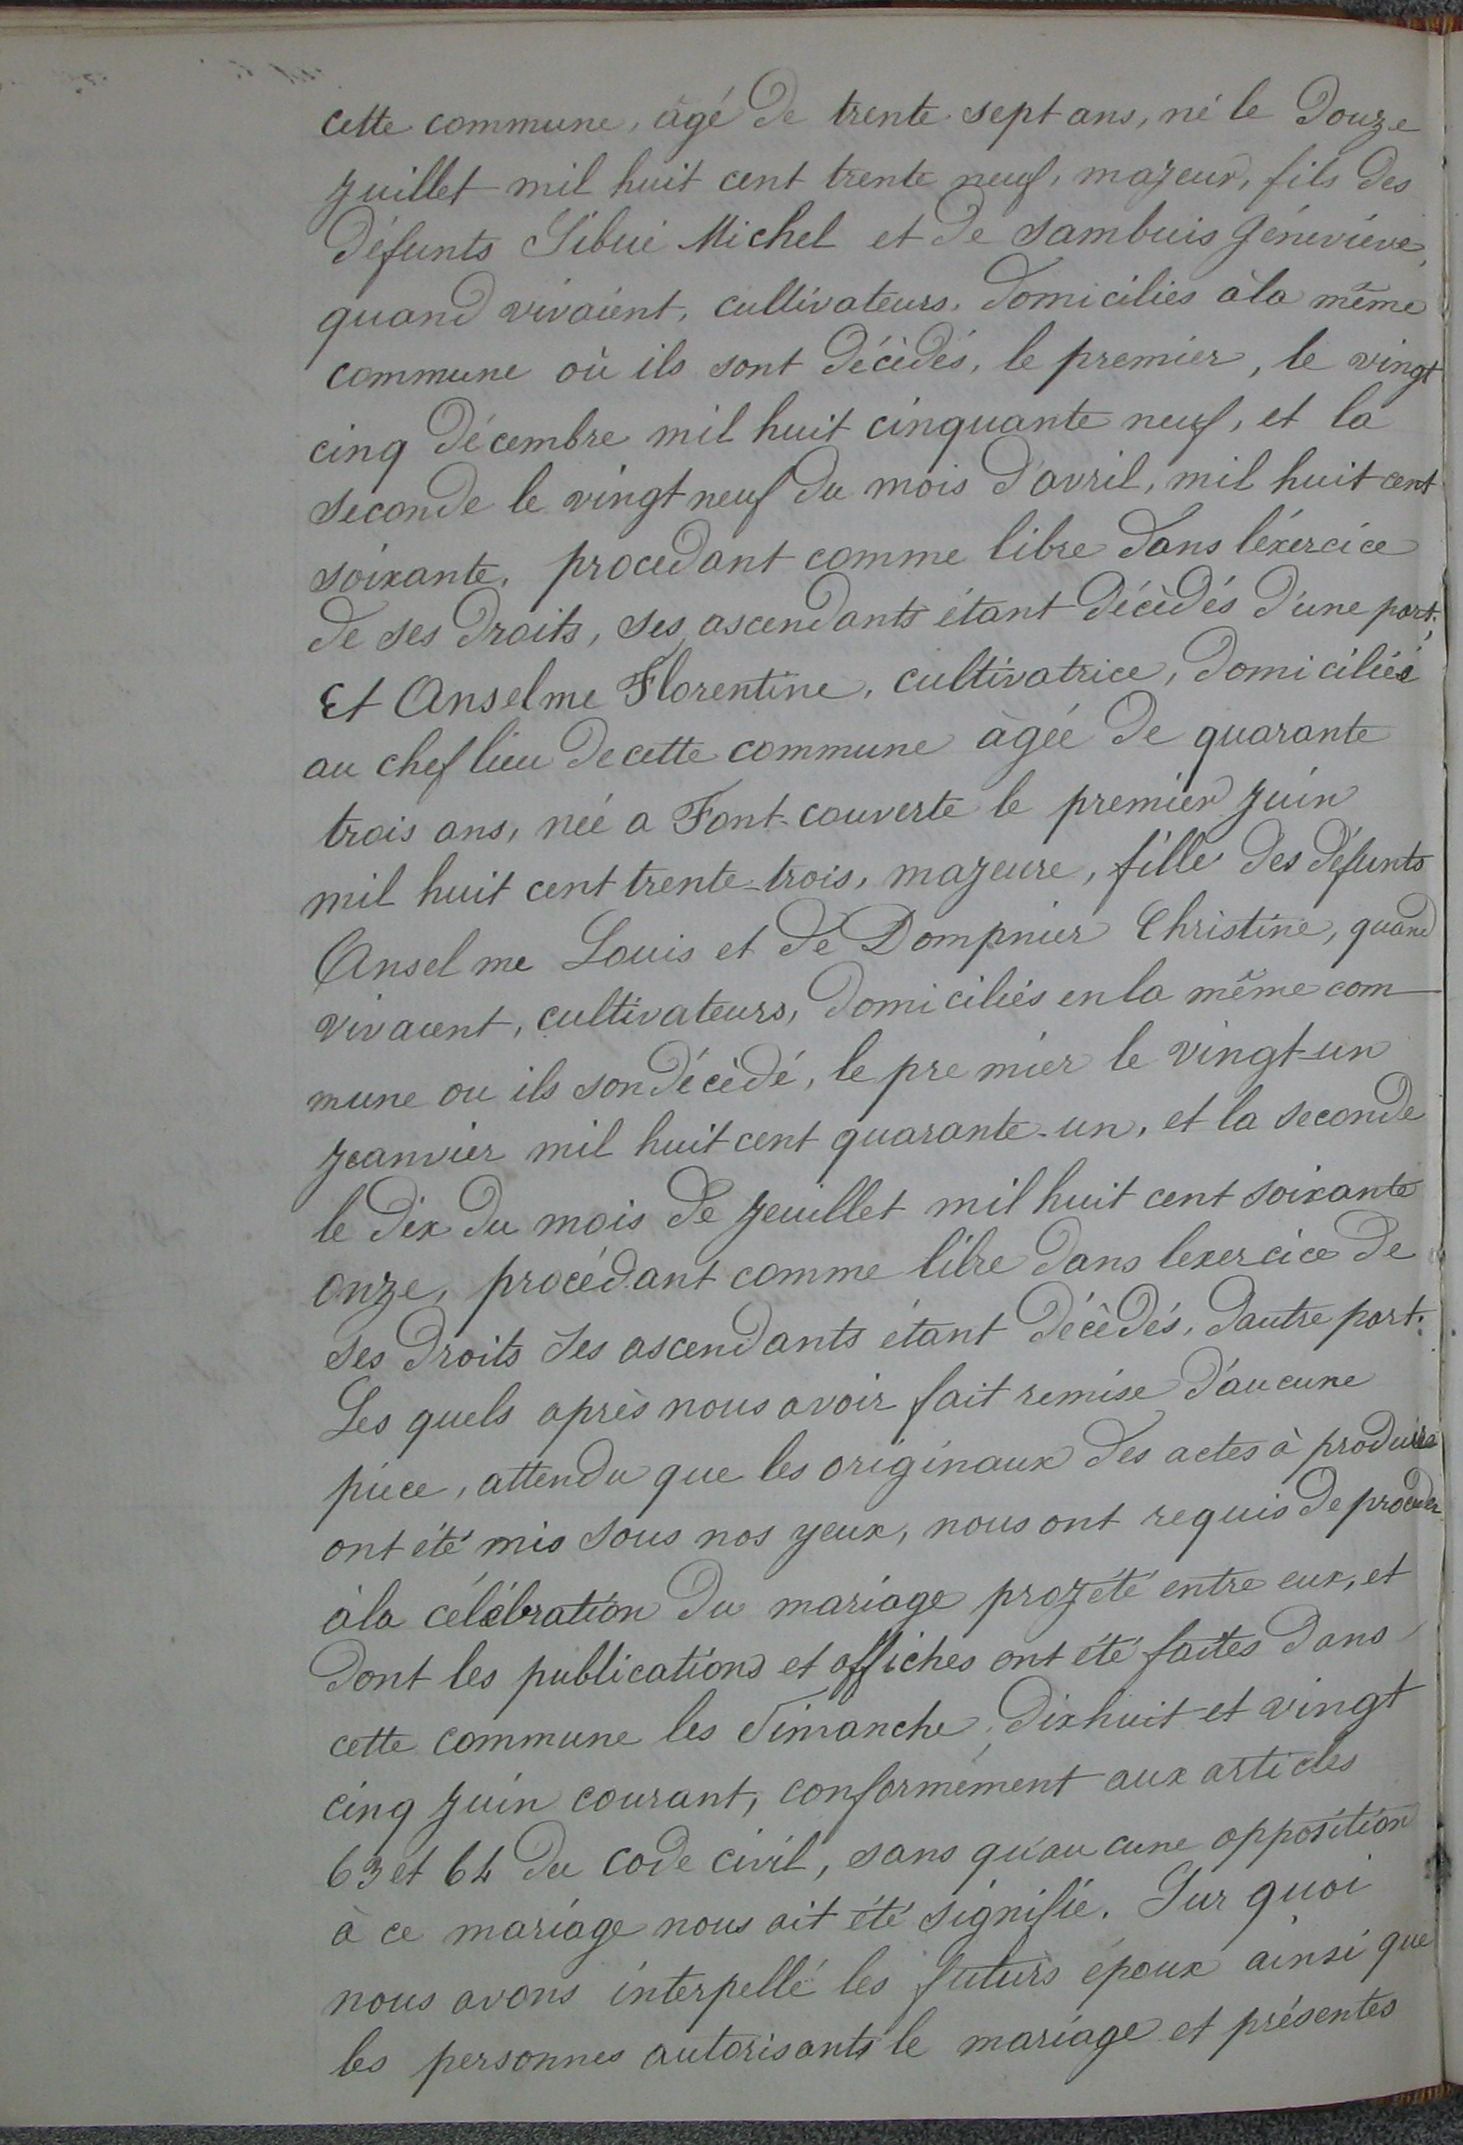 cette commune, âgé de trente sept ans, né le douze
juillet mil huit cent trente neuf, majeur, fils des
défunts Sibué Michel et de Sambuis Géneviève,
quand vivaient, cultivateurs, domiciliés à la même
commune où ils sont décédés, le premier, le vingt
cinq décembre mil huit cinquante neuf, et la
seconde le vingt neuf du mois d'avril, mil huit cent
soixante, procedant comme libre dans l'éxercice
de ses droits, ses ascendants étant décèdés d'une part;
Et Anselme Florentine, cultivatrice, domiciliée
au chef lieu de cette commune âgée de quarante
trois ans, née a Font-couverte le premier juin
mil huit cent trente-trois, majeure, fille des défunts
Anselme Louis et de Dompnier Christine, quand
vivaient, cultivateurs, domiciliés en la même com
mune ou ils son décèdé, le premier le vingt-un
jeanvier mil huit cent quarante-un, et la seconde
le dix du mois de jeuillet mil huit cent soixante
onze, procédant comme libre dans lexercice de
ses droits ses ascendants étant décèdés, dautre part.
Les quels après nous avoir fait remise d'aucune
pièce, attendu que les originaux des actes à produire
ont été mis sous nos yeux, nous ont requis de proceder
à la célébration du mariage projété entre eux, et
dont les publications et affiches ont été faites dans
cette commune les Dimanche, dixhuit et vingt
cinq juin courant, conformément aux articles
63 et 64 du code civil, sans qu'au cune opposition
à ce mariage nous ait été signifié. Sur quoi
nous avons interpellé les futurs époux ainsi que
les personnes autorisants le mariage et présentes